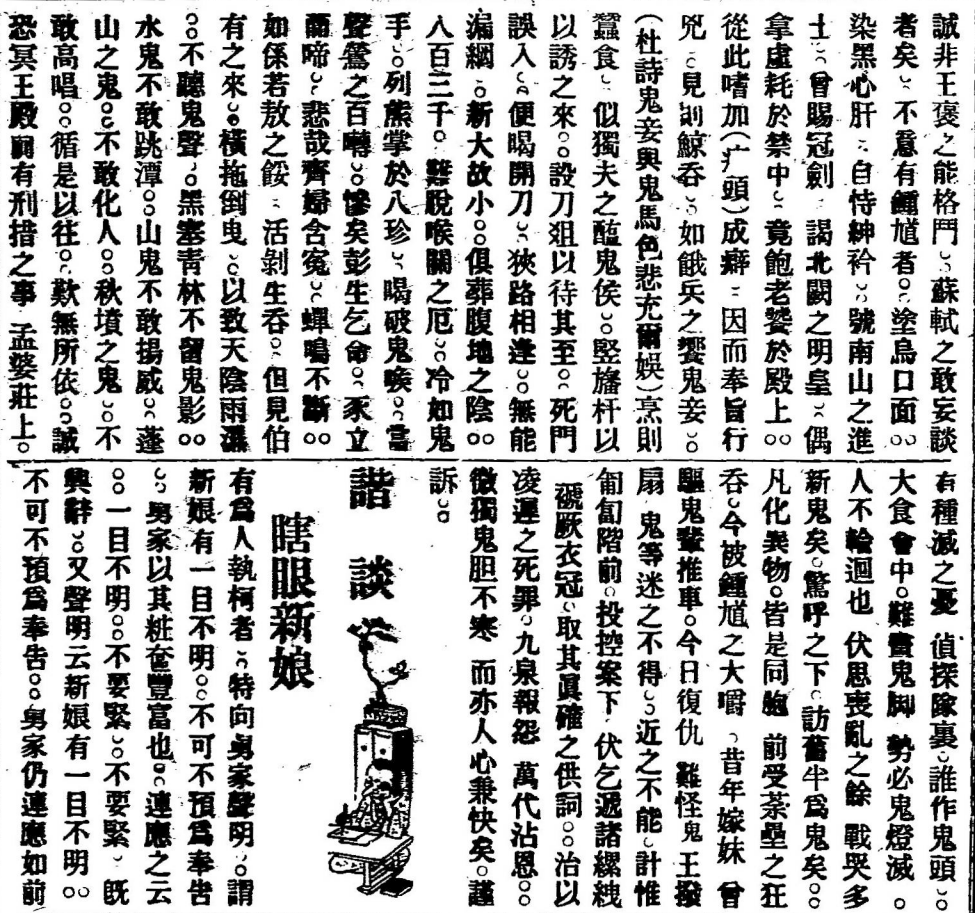 誠非王褒之能格鬥。蘇軾之敢妄談
者矣。不意有鍾馗者。塗烏口面。
染黑心肝。自恃紳衿。號南山之進
士。曾賜冠劍。謁北闕之明皇。偶
拿虛耗於禁中。竟飽老饕於殿上。
從此嗜加(疒頭)成癖。因而奉旨行
兇。見則鯨吞。如餓兵之饗鬼妾。
(杜詩鬼妾與鬼馬色悲充爾娛)烹則
蠶食。似獨夫之醢鬼侯。竪旛杆以
以誘之來。設刀俎以待其至。死門
誤入。便喝開刀。狹路相逢。無能
漏網。新大故小。俱葬腹地之陰。
八百三千。難脫喉關之厄。冷如鬼
手。列熊掌於八珍。喝破鬼喉。當
聲鶯之百囀。慘矣彭生乞命。豕立
而啼。悲哉齊婦含寃。蟬鳴不斷。
如係若敖之餒。活剝生吞。但見伯
有之來。橫拖倒曳。以致天陰雨濕
。不聽鬼聲。黑塞青林不留鬼影。
水鬼不敢跳潭。山鬼不敢揚威。蓬
山之鬼。不敢化人。秋墳之鬼。不
敢高唱。循是以往。歎無所依。誠
恐冥王殿前有刑措之事 孟婆莊上。
有種滅之憂 偵探隊裏。誰作鬼頭。
大食會中。難畫鬼脚 勢必鬼燈滅。
人不輪迴也 伏思喪亂之餘 戰哭多
新鬼矣。驚呼之下。訪舊半爲鬼矣。
凡化異物。皆是同胞 前受荼壘之狂
吞。今被鍾馗之大嚼。昔年嫁妹 曾
驅鬼輩推車。今日復仇 難怪鬼王撥
扇 鬼等迷之不得。近之不能。計惟
匍匐階前。投控案下 伏乞遞諸縲絏
褫厥衣冠。取其眞確之供詞。治以
凌遲之死罪。九泉報怨 萬代沾恩。
微獨鬼胆不寒 而亦人心兼快矣。謹
訴。
諧談
瞎眼新娘
有爲人執柯者。特向舅家聲明。謂
新娘有一目不明。不可不預爲奉告
。舅家以其粧奩豐富也。連應之云
。一目不明。不要緊。不要緊。旣
興辭。又聲明云新娘有一目不明。
不可不預爲奉告。舅家仍連應如前